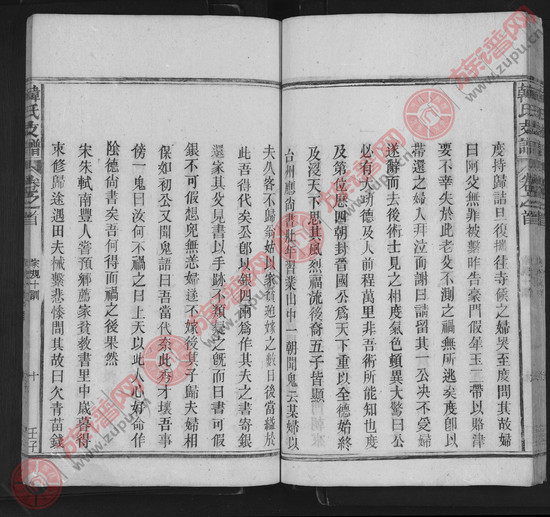 度持歸詰旦復攜往寺候之婦哭至度問其故婦
曰阿父無罪被繫昨告豪門假年玉二帶以賂津
要不幸失於此老父不測之禍無所逃矣度卽以
帶還之婦人拜泣而謝曰請留其一公失不受婦
遂辭而去後術士見之相度氣色頓異大驚曰公
必有陰功德及人前程萬里非吾術所能知也度
及第位歷四朝封晉國公爲天下重以全德始終
及沒天下思其風烈福流後裔五子皆顯
台州應尚書壯年習業山中一朝聞鬼云某婦以
夫久客不歸翁姑以家貧逼嫁之數日後當縊於
此吾得代矣公卽以銀四兩爲作其夫之書寄銀
還家其父見書以手跡不類疑之旣而曰書可假
銀不可假想兒無恙婦遂不嫁後其子歸夫婦相
保如初公又聞鬼語曰吾當代奈此秀才壞吾事
傍一鬼曰汝何不禍之曰上天以此人心好命作
陰德尚書矣吾何得而禍之後果然
宋朱軾南豐人嘗預鄉薦家貧教書里中歲導得
束修歸途遇田夫械繫悲慘問其故曰欠青苗錢
韓氏支譜
卷之首
家規十訓
十
壬子
韓氏支譜
卷之首
族谱网
www.zupu.cn